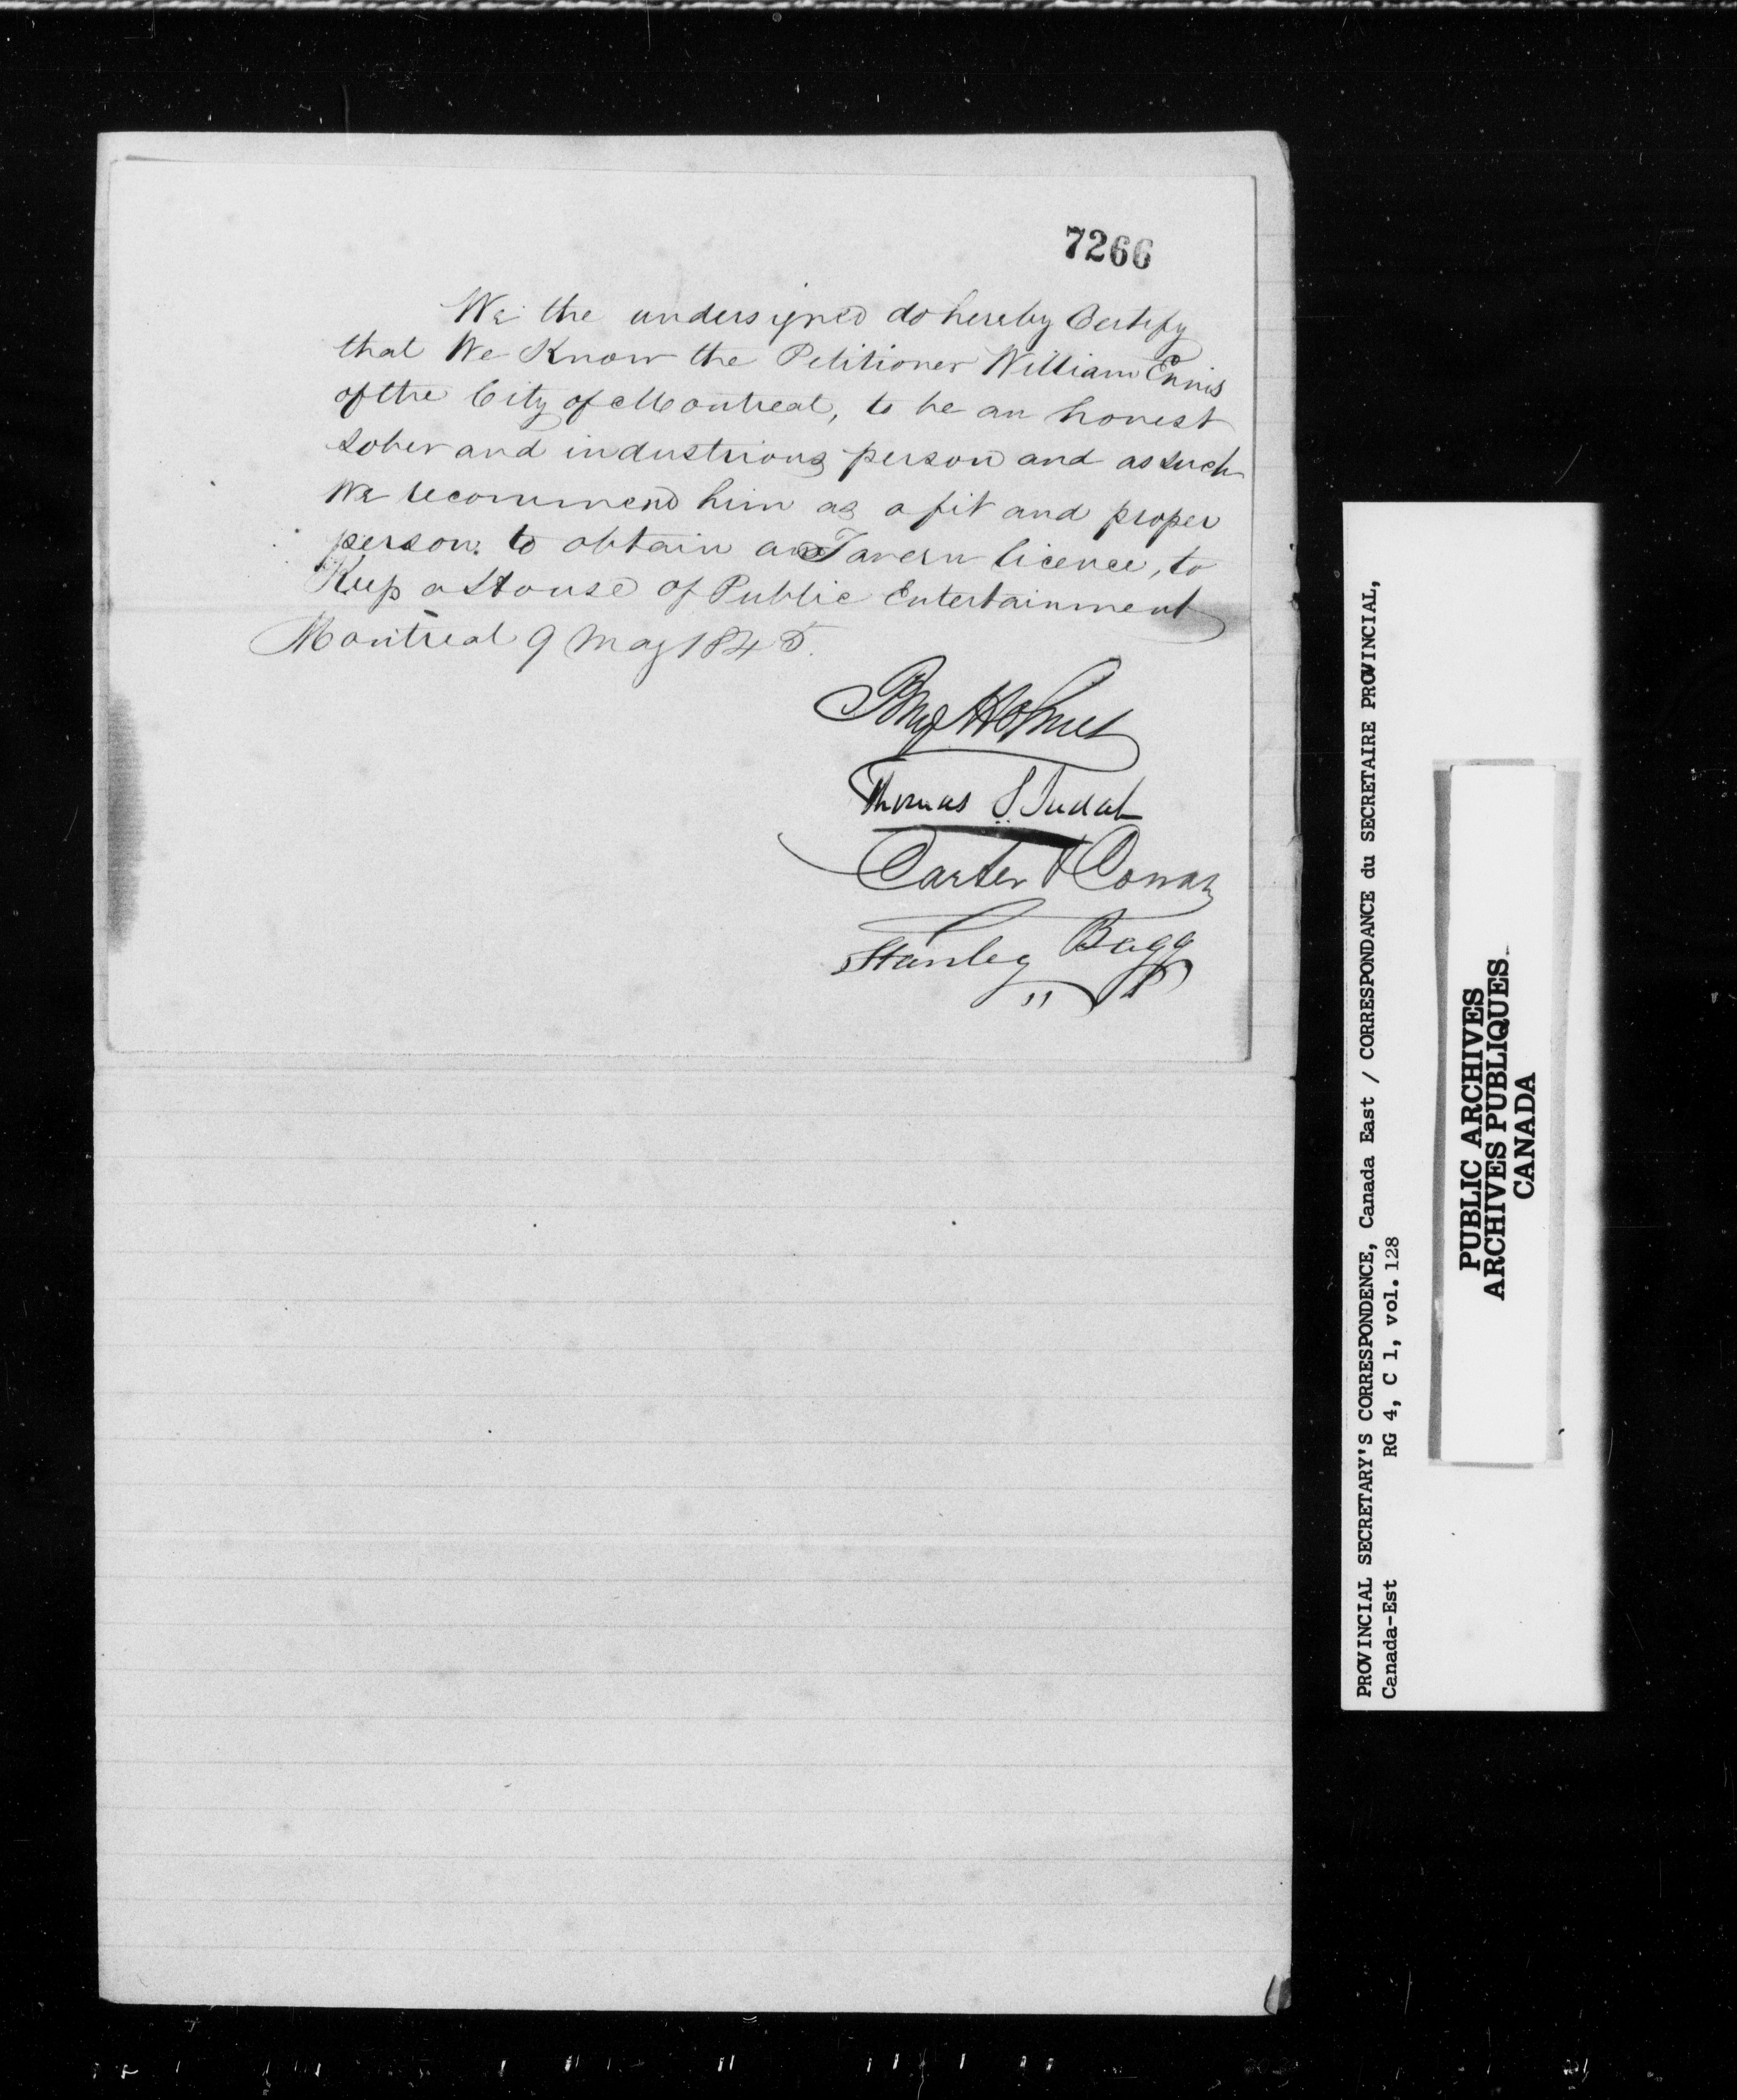 7266
We the undersigned do hereby Certify
that We Know the Petitioner William Ennis
of the City of Montreal, to be an honest
sober and industrious person and as such
We recommend him as a fit and proper
person to obtain a Tavern licence, to
Keep a House of Public Entertainment
Montreal 9 May 1845.
Benj Holmes
Thomas S. Judah
Carter & Cowan
Stanley Bagg
PROVINCIAL SECRETARY'S CORRESPONDENCE, Canada East / CORRESPONDANCE du SECRETAIRE PROVINCIAL,
Canada-Est RG 4, C 1, vol. 128
PUBLIC ARCHIVES
ARCHIVES PUBLIQUES
CANADA